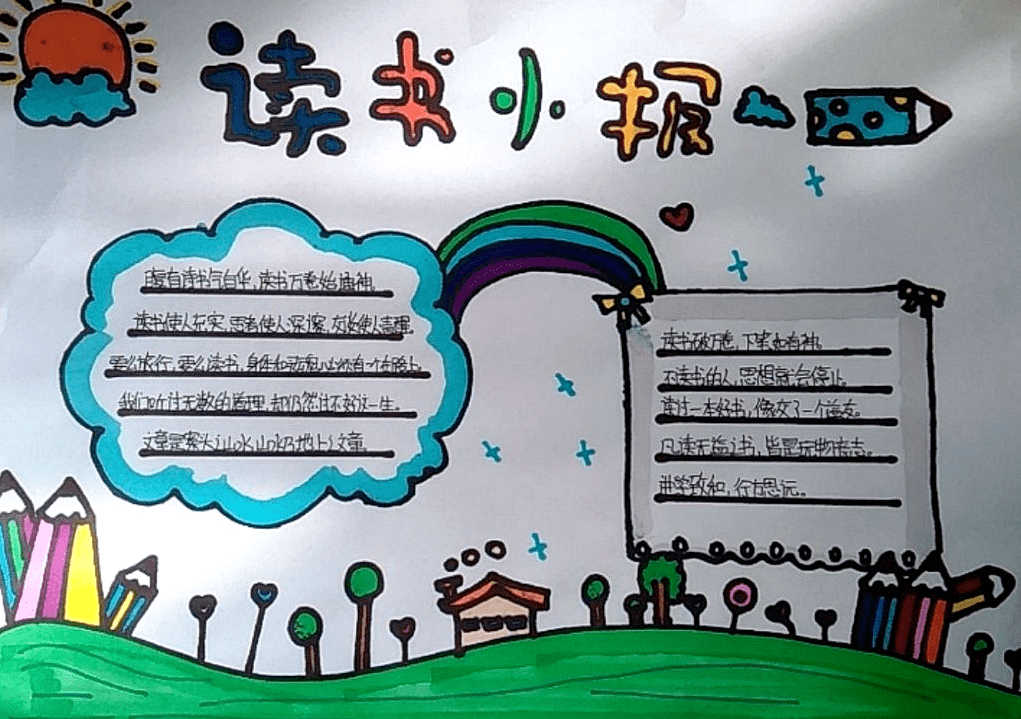 读书小报
腹有诗书气自华，读书万卷始通神。
读书使人充实，思考使人深邃，交谈使人清醒。
要么旅行，要么读书，身体和灵魂必须有一个在路上。
我们听过无数的道理，却仍然过不好这一生。
文章是案头之山水，山水乃地上之文章。
读书破万卷，下笔如有神。
不读书的人，思想就会停止。
读过一本好书，像交了一个益友。
凡读无益之书，皆是玩物丧志。
进学致和，行方思远。